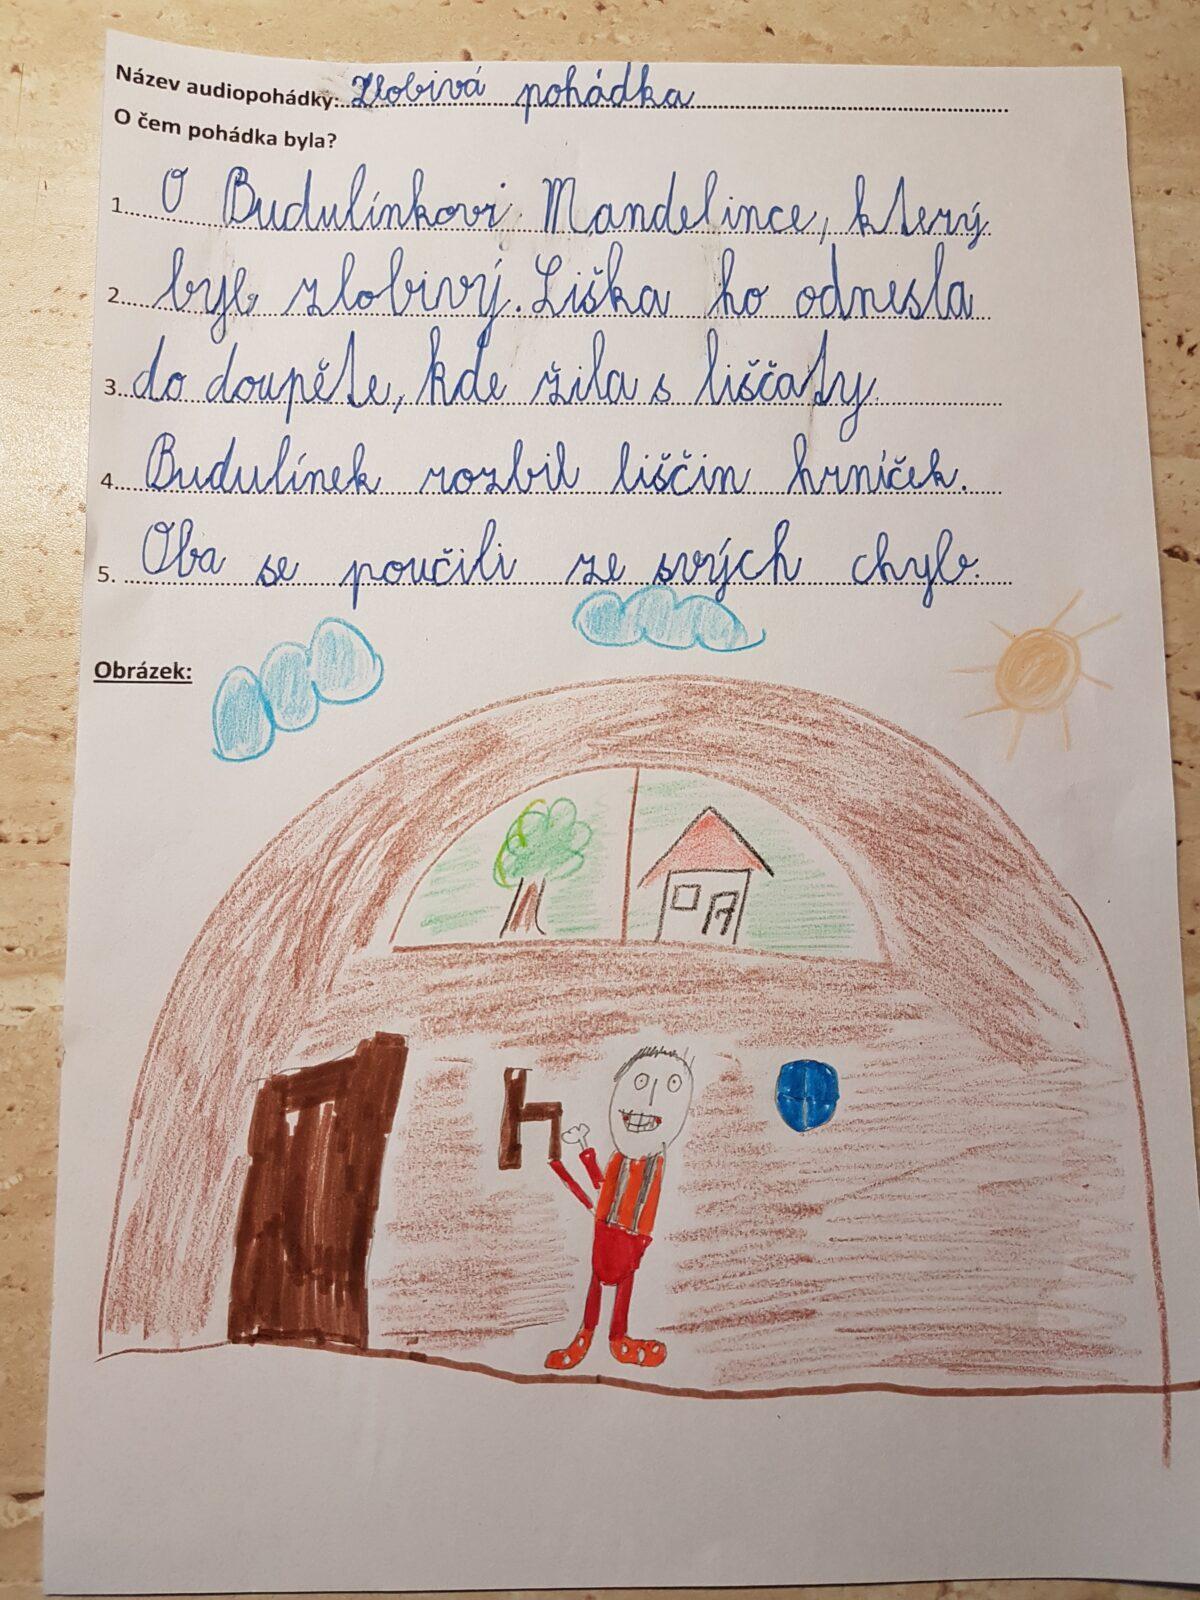 Název audiopohádky: Zlobivá pohádka
O čem pohádka byla?
1. O Budulínkovi Mandelince, který
2. byl zlobivý. Liška ho odnesla
3. do doupěte, kde žila s liščaty
4. Budulínek rozbil liščin hrníček.
5. Oba se poučili ze svých chyb.
Obrázek: